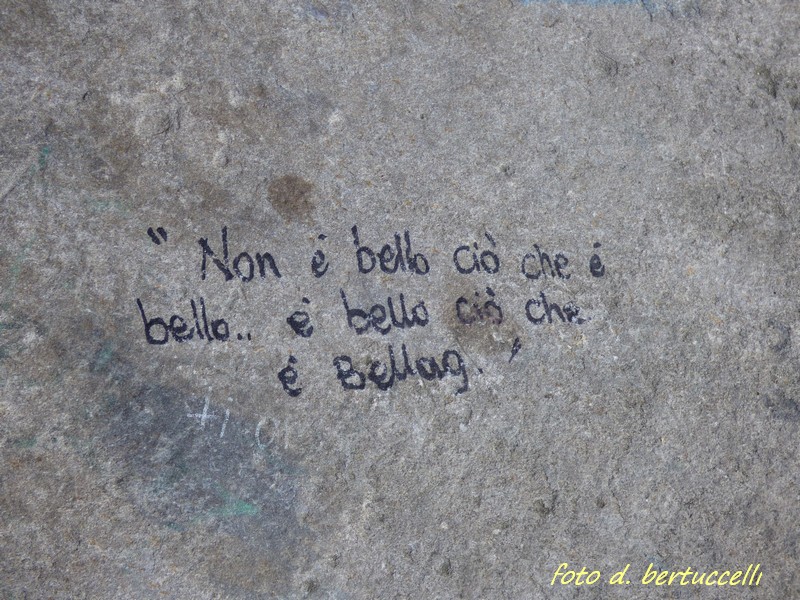 " Non é bello ciò che é
bello.. é bello ciò che
é Bellag. "
foto d. bertuccelli